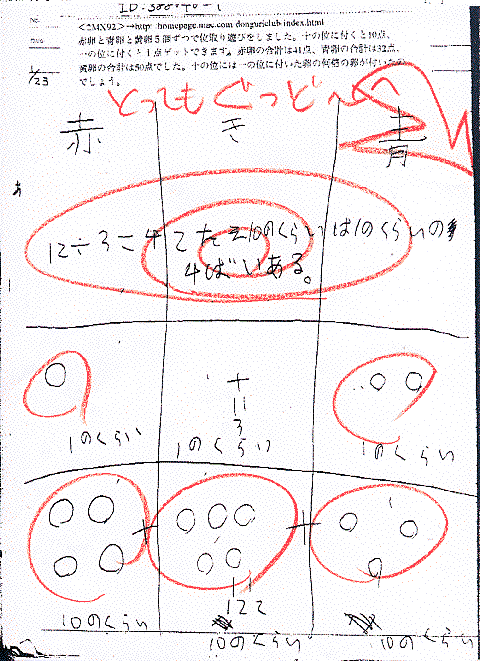 <2MX92>
赤卵と青卵と黄卵5個ずつで位取り遊びをしました。十の位に付くと10点、
一の位に付くと1点ゲットできます。赤卵の合計は41点、青卵の合計は32点、
黄卵の合計は50点でした。十の位には一の位に付いた卵の何倍の卵が付いたの
でしょう。
1/23
とってもぐっど
赤 き 青
12÷3=4 こたえ10のくらいは1のくらいの
4ばいある。
+
11
3
1のくらい 1のくらい 1のくらい
+ +
11
12こ
10のくらい 10のくらい 10のくらい